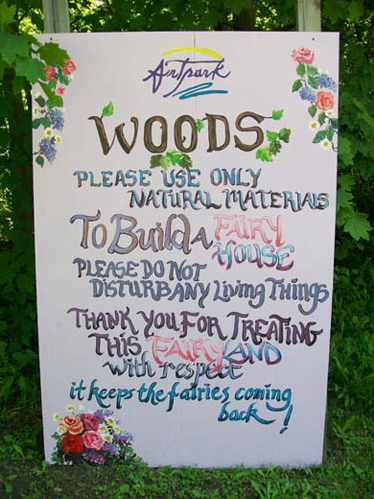 Artpark
WOODS
PLEASE USE ONLY
NATURAL MATERIALS
To Build a FAIRY
HOUSE
PLEASE DO NOT
DISTURB ANY Living Things
THANK YOU FOR TREATING
THIS FAIRYLAND
with respect
it keeps the fairies coming
back!